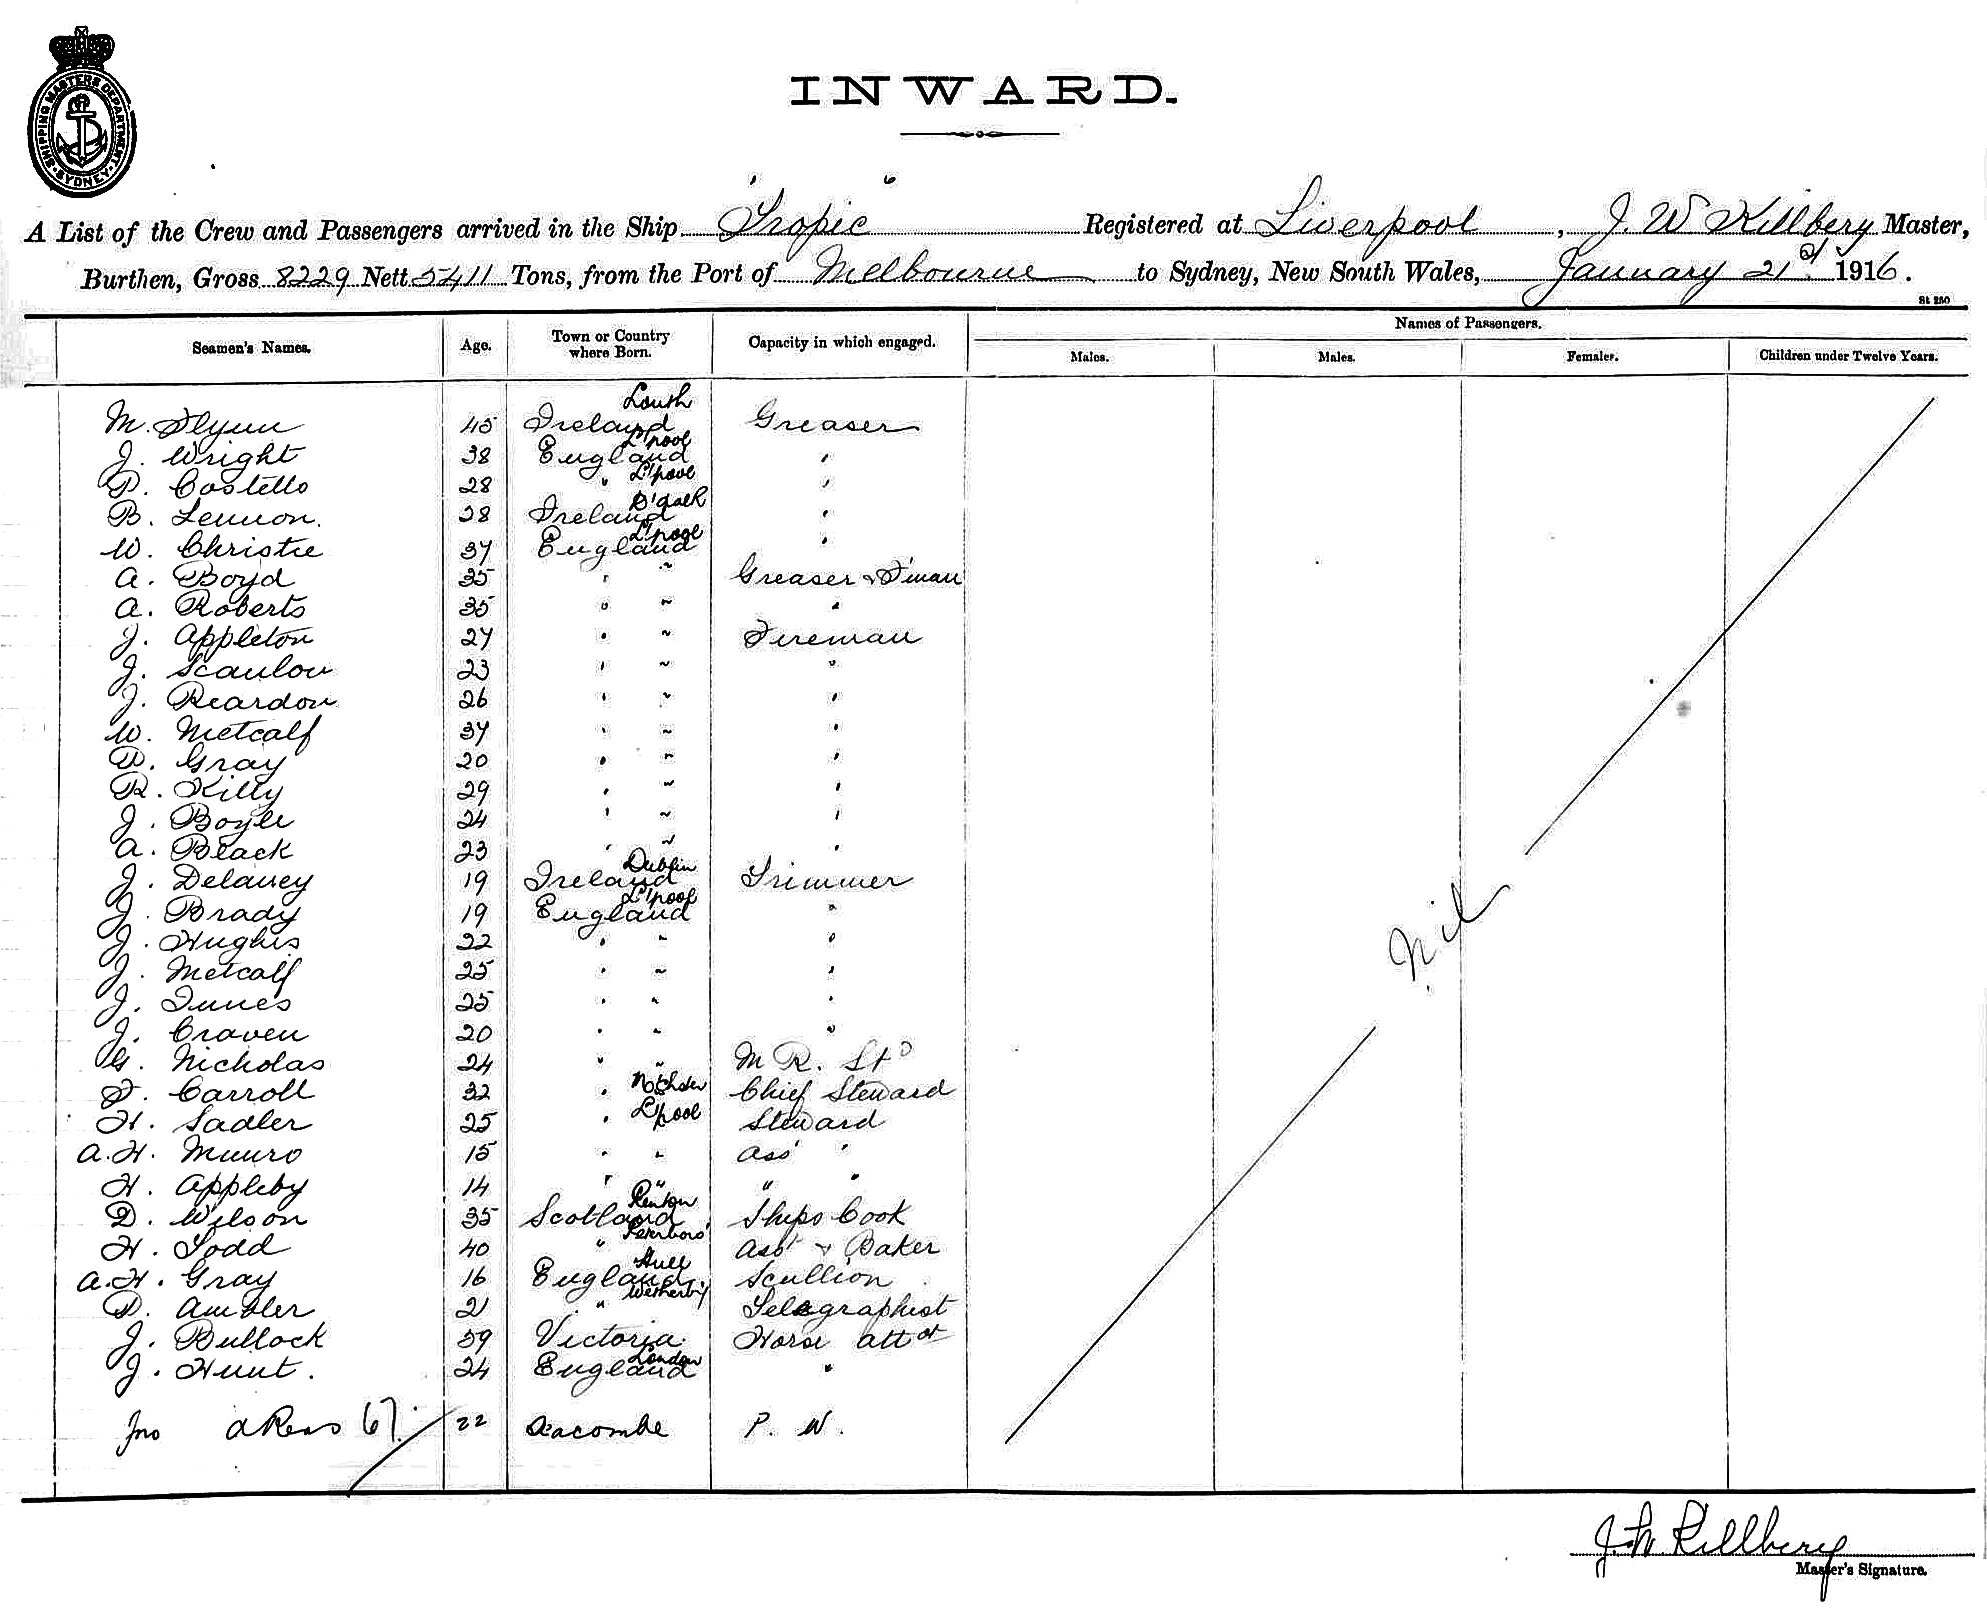 SHIPPING MASTERS DEPARTMENT SYDNEY
INWARD.
A List of the Crew and Passengers arrived in the Ship "Tropic" Registered at Liverpool, J. W Killbery Master,
Burthen, Gross 8229 Nett 5411 Tons, from the Port of Melbourne to Sydney, New South Wales, January 21st 1916.
St 250
Seamen's Names. Age. Town or Country where Born. Capacity in which engaged. Names of Passengers.
Males. Males. Females. Children under Twelve Years.
M. Flynn 45 Ireland Louth Greaser
J. Wright 38 England L'pool "
P. Costello 28 " L'pool "
B. Lennon. 28 Ireland D'dalk "
W. Christie 37 England L'pool "
A. Boyd 35 " " Greaser & F'man
A. Roberts 35 " " "
J. Appleton 27 " " Fireman
J. Scanlon 23 " " "
J. Reardon 26 " " "
W. Metcalf 37 " " "
D. Gray 20 " " "
R. Killy 29 " " "
J. Boyle 24 " " "
A. Black 23 " " "
J. Delaney 19 Ireland Dublin Trimmer
J. Brady 19 England L'pool "
J. Hughes 22 " " "
J. Metcalf 25 " " "
J. Innes 25 " " "
J. Craven 20 " " "
G. Nicholas 24 " " M R. Std
F. Carroll 32 " Chief Steward
H. Sadler 25 " L'pool Steward
A. H. Munro 15 " " Ass' "
H. Appleby 14 " " " "
D. Wilson 35 Scotland Renton Ships Cook
H. Todd 40 " Peterboro' Asst & Baker
A. H. Gray 16 England Hull Scullion
D. Ambler 21 " Wetherby Telegraphist
J. Bullock 59 Victoria Horse attdt
J. Hunt. 24 England London "
Jno 67. 22 P. W.
Nil
J. W. Killbery
Master's Signature.